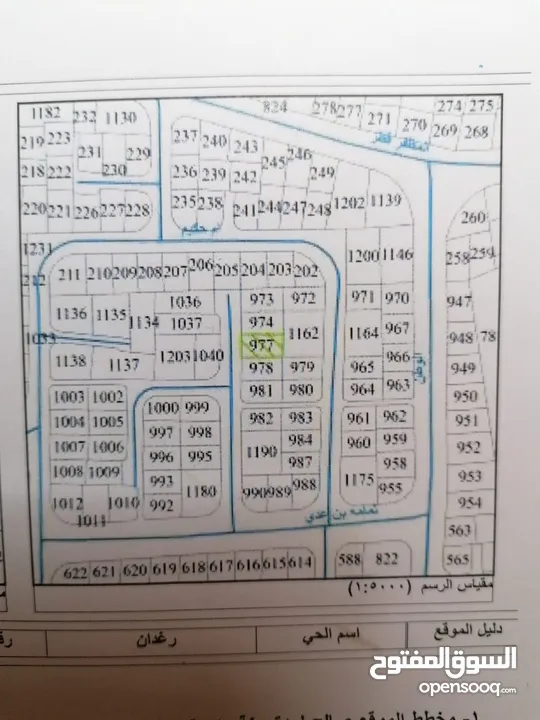 824 278 277 271 270 274 275
269 268
1182 232 1130
219 223 231 229
218 222 230
220 221 226 227 228
237 240 243 245 246
236 239 242 249
235 238 241 244 247 248 1202 1139
260
1231
212
1200 1146 258 259
211 210 209 208 207 206 205 204 203 202
1036 973 972 971 970 947
1136 1135 1134 1037 974 1162 1164 967 948 78
1033 977
1138 1137 1203 1040 978 979 965 966 949
981 980 964 963 950
1003 1002 1000 999 982 983 961 962 951
1004 1005 997 998 984 960 959 952
1007 1006 996 995 1190 987 958
1008 1009 993 1180 988 1175 955 953
1012 1010 992 990 989 954
1011
ثمامه بن عدي
563
622 621 620 619 618 617 616 615 614 588 822 565
مقياس الرسم (١:٥٠٠٠)
دليل الموقع اسم الحي رغدان
السوق المفتوح
opensooq.com